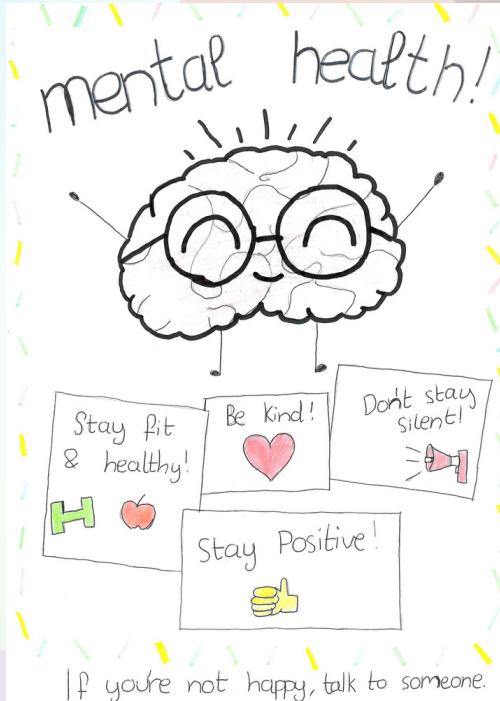 mental health!
Stay fit
& healthy!
Be kind!
Don't stay
silent!
Stay Positive!
If you're not happy, talk to someone.